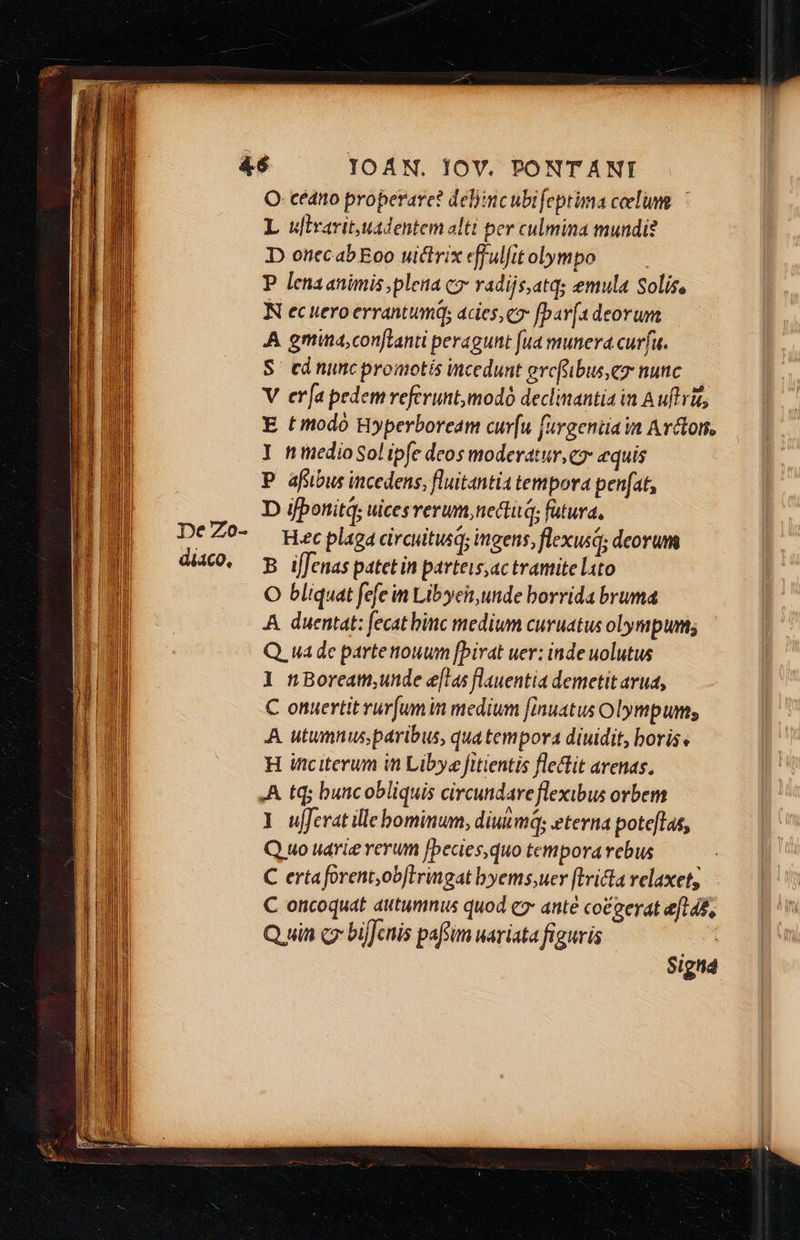 46 IOAN. IOV. PONTANI
O ceano properare? dehinc ubi ſeptima cœlum
L uſtrarit, uadentem alti per culmina mundi?
D onec ab Eoo uictrix effulſit olympo
P lena animis, plena & radijs, atq; æmula Solis.
N ec uero errantumq́; acies, & ſparſa deorum
A gmina, conſtanti peragunt ſua munera curſu.
S ed nunc promotis incedunt greſsibus, & nunc
V erſa pedem referunt, modò declinantia in Auſtrũ,
E t modò Hyperboream curſu ſurgentia in Arcton.
I n medio Sol ipſe deos moderatur, & æquis
P aſsibus incedens, fluitantia tempora penſat,
D iſponitq́; uices rerum, nectitq́; futura.
De Zo-
diaco.
Hæc plaga circuitusq́; ingens, flexusq́; deorum
B iſſenas patet in parteis, ac tramite lato
O bliquat ſeſe in Libyen, unde horrida bruma
A duentat: ſecat hinc medium curuatus olympum,
Q ua de parte nouum ſpirat uer: inde uolutus
I n Boream, unde æſtas flauentia demetit arua,
C onuertit rurſum in medium ſinuatus Olympum,
A utumnus, paribus, qua tempora diuidit, horis.
H inc iterum in Libyæ ſitientis flectit arenas.
A tq; hunc obliquis circundare flexibus orbem
I uſſerat ille hominum, diuũmq́; æterna poteſtas,
Q uo uariæ rerum ſpecies, quo tempora rebus
C erta forent, obſtringat hyems, uer ſtricta relaxet,
C oncoquat autumnus quod & antè coëgerat æſtas,
Q uin & biſſenis paſsim uariata figuris
Signa